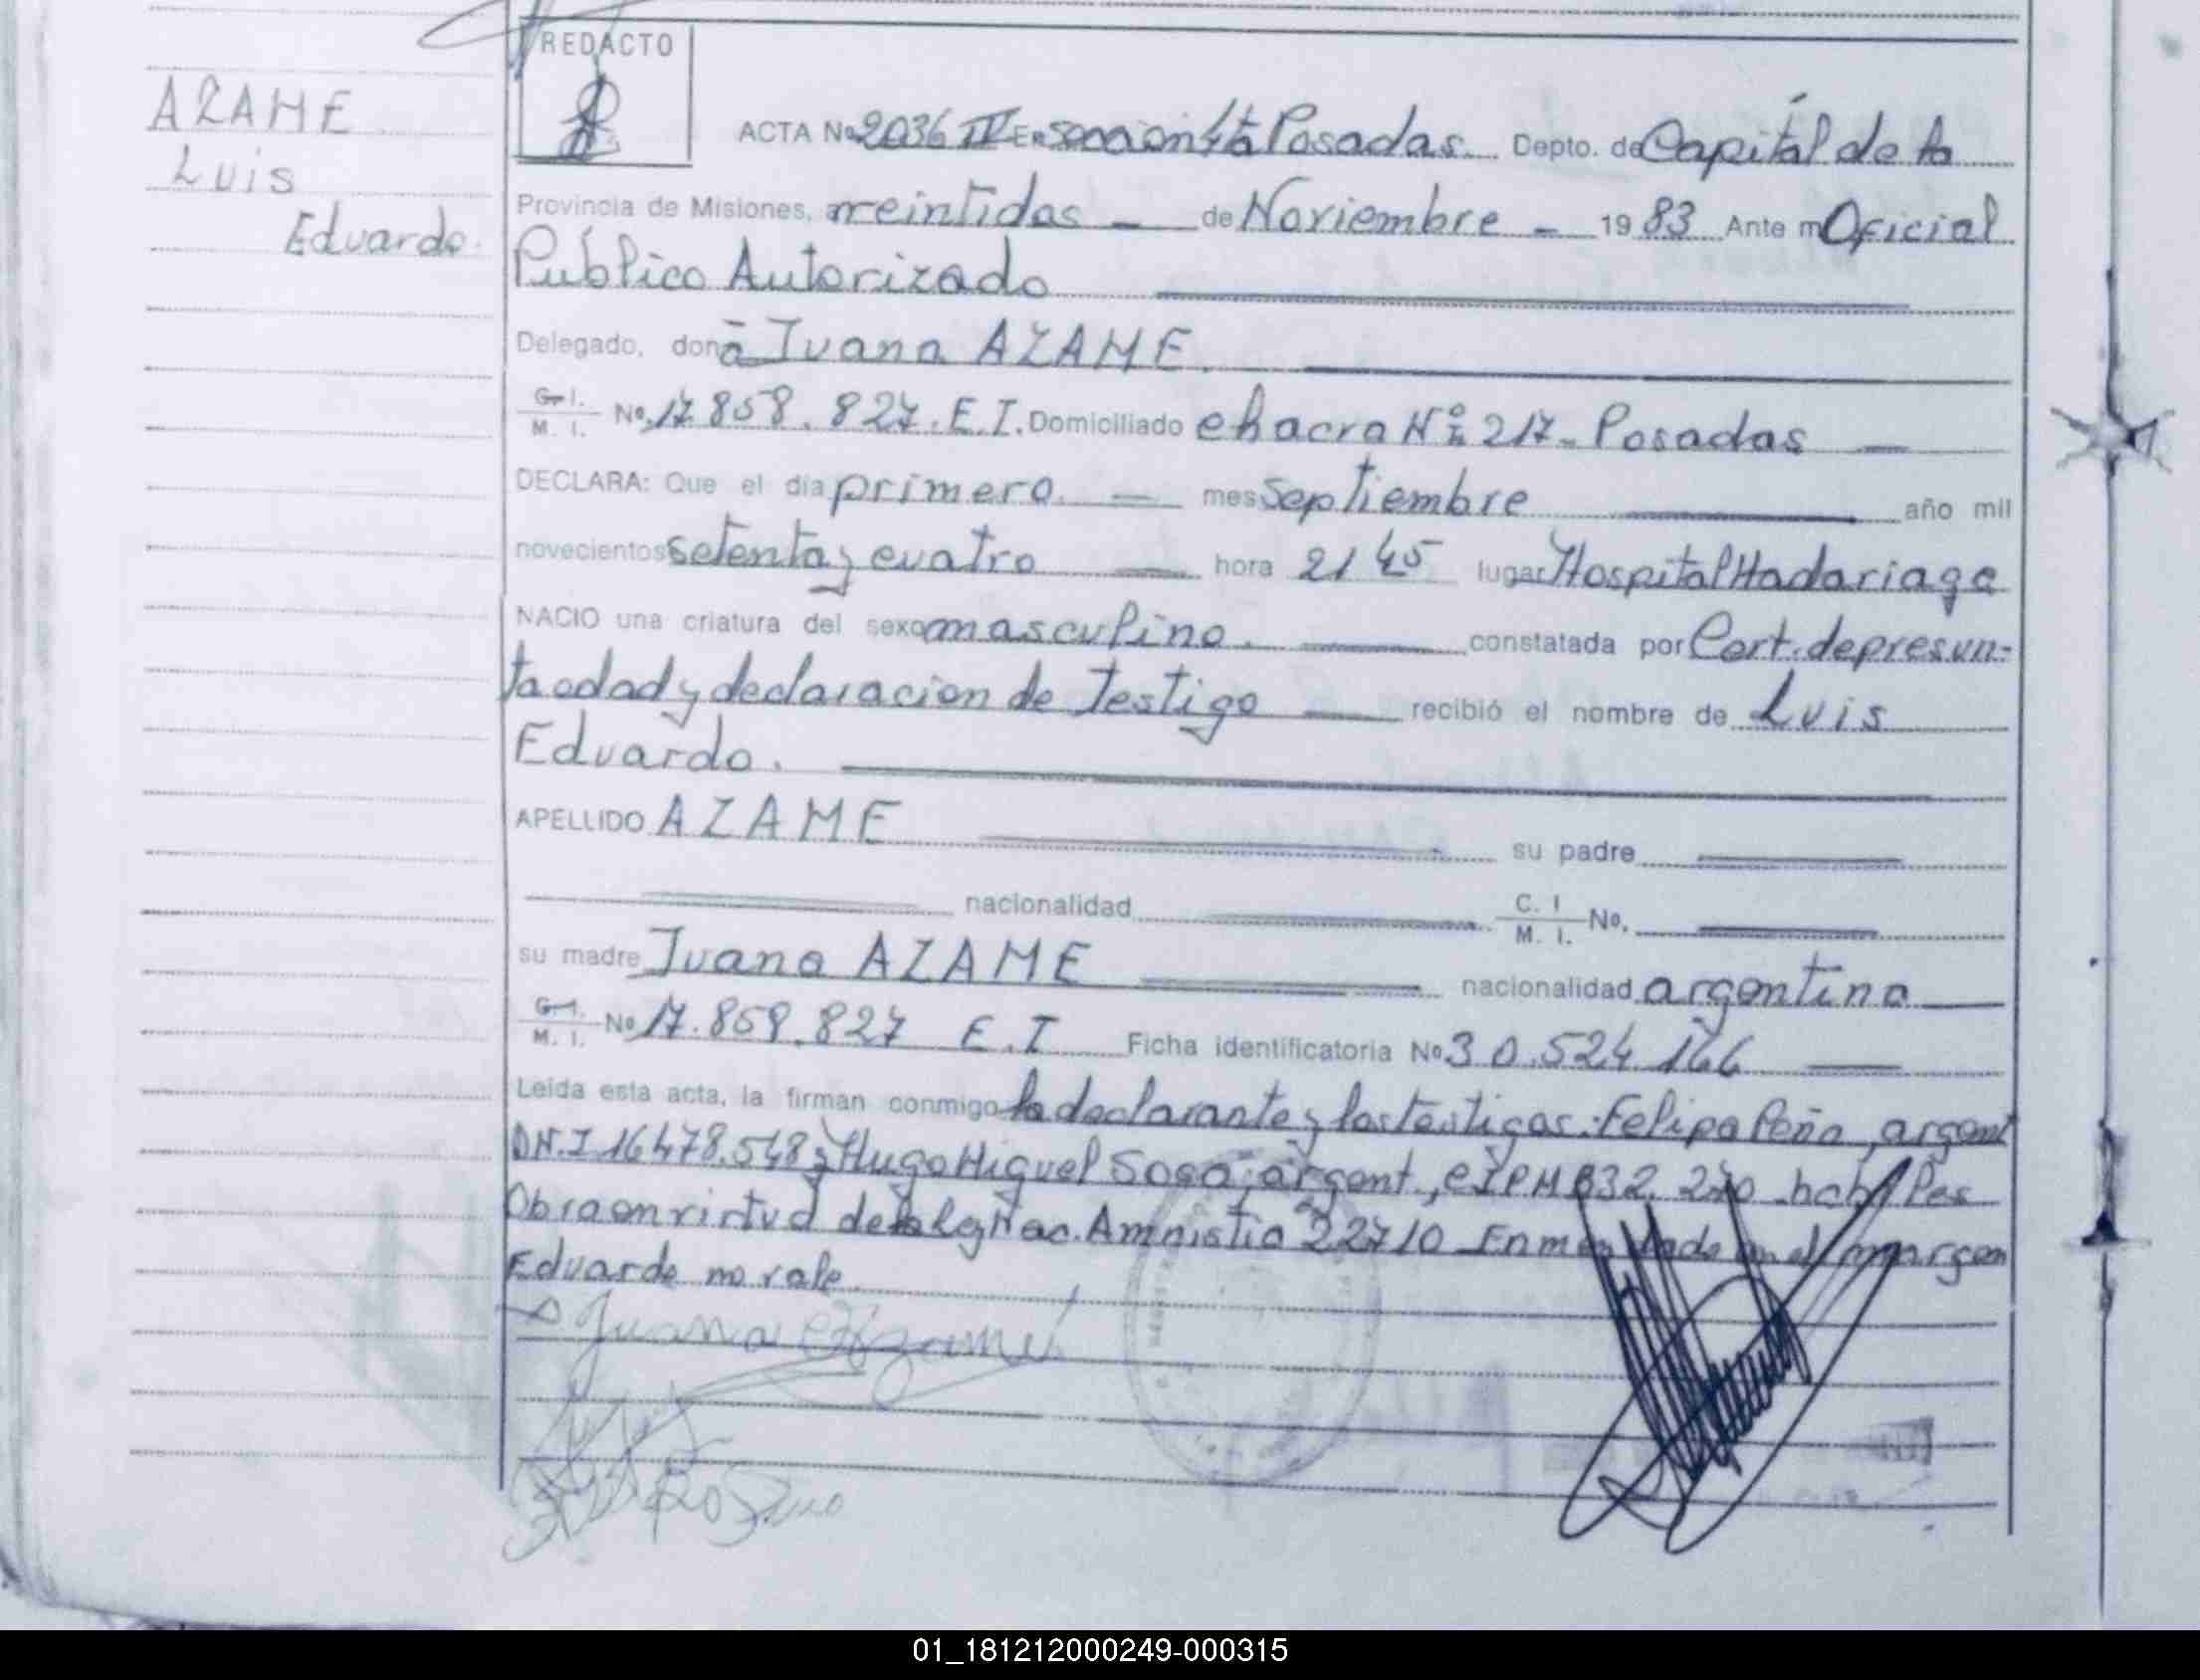 REDACTO
AZAME
Luis
Eduardo.
ACTA Nº 2036 IV En sección 4ta Posadas. Depto. de Capital de la
Provincia de Misiones, veintidos - de Noviembre - 1983 Ante mi Oficial
Público Autorizado
Delegado, doña Juana AZAME.
C. I. M. I. Nº. 17.858.827. E.I. Domiciliado chacra Nº 217- Posadas
DECLARA: Que el día primero. mes septiembre año mil
novecientos setenta y cuatro hora 21 45 lugar Hospital Madariaga
NACIO una criatura del sexo masculino. constatada por Cert. de presun-
ta edad y declaracion de testigo recibió el nombre de Luis
Eduardo.
APELLIDO AZAME su padre
nacionalidad C. I M. I. Nº.
su madre Juana AZAME nacionalidad argentina
C. I. M. I. Nº 17.858.827 E.I Ficha identificatoria Nº 30.524.166
Leída esta acta, la firman conmigo la declarante y los testigos: Felipa Peña, argent
D.N.I. 16478.548 y Hugo Miguel Sosa, argent., CIPM 632.270 hab. Pos
Obra en virtud de la ley Nac. Amnistia 22710 Enmendado en el margen
Eduardo no vale.
Juana Azame
01_181212000249-000315